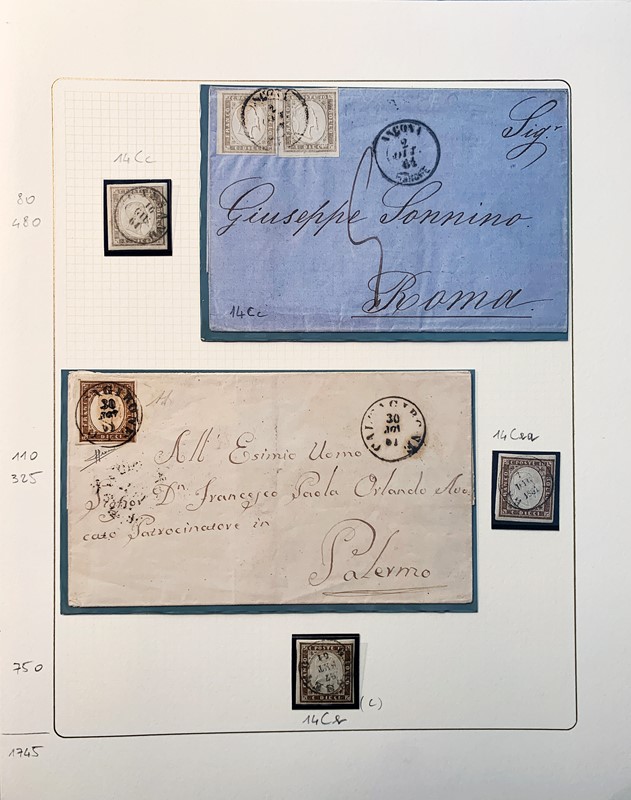 14Cc
80
480
ANCONA
2
OTT.
61
Sigr
Giuseppe Sonnino
5
Roma
14Cc
110
325
CALTAGIRONE
30
NOV
61
All' Esimio Uomo
Signor Dn. Francesco Paola Orlando Avvo
cato Patrocinatore in
Palermo
14Csa
750
(L)
14Cs
1745